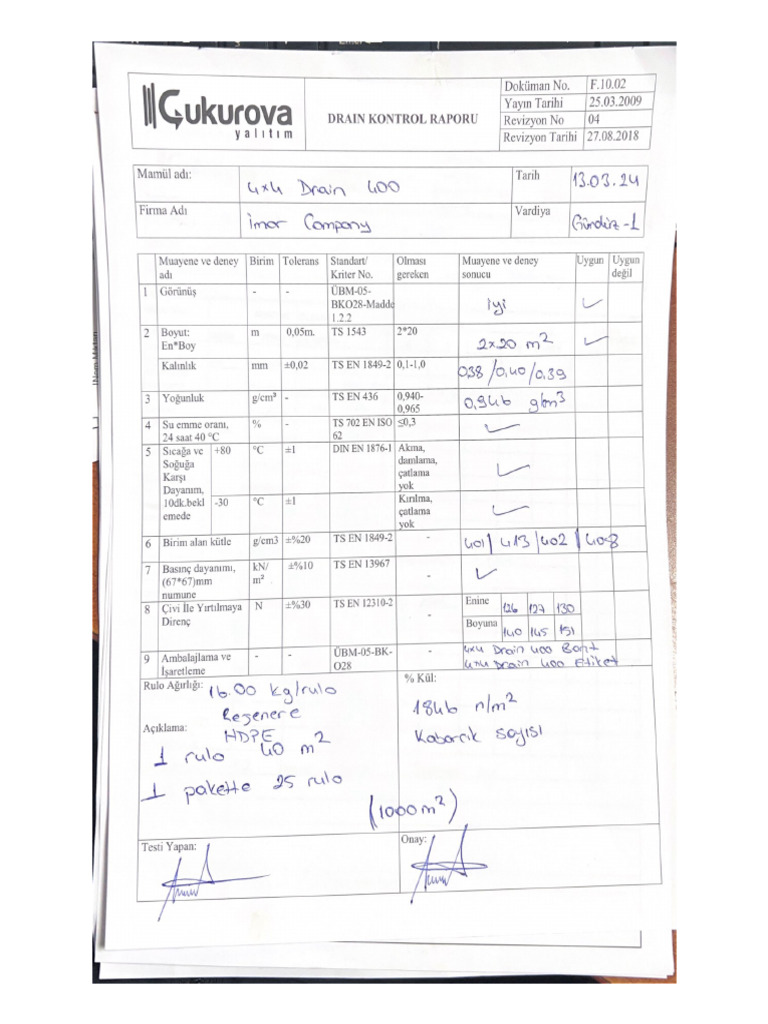 Çukurova
yalıtım
DRAIN KONTROL RAPORU
Doküman No. F.10.02
Yayın Tarihi 25.03.2009
Revizyon No 04
Revizyon Tarihi 27.08.2018
Mamül adı: 4x4 Drain 400 Tarih 13.03.24
Firma Adı imor Company Vardiya Gündüz-1
Muayene ve deney adı Birim Tolerans Standart/ Kriter No. Olması gereken Muayene ve deney sonucu Uygun Uygun değil
1 Görünüş - - ÜBM-05-BKO28-Madde 1.2.2 iyi ✓
2 Boyut: En*Boy m 0,05m. TS 1543 2*20 2x20 m² ✓
Kalınlık mm ±0,02 TS EN 1849-2 0,1-1,0 038/0,40/0,39
3 Yoğunluk g/cm³ - TS EN 436 0,940-0,965 0,946 g/cm³
4 Su emme oranı, 24 saat 40 °C % - TS 702 EN ISO 62 ≤0,3 ✓
5 Sıcağa ve Soğuğa Karşı Dayanım, 10dk.bekl emede +80 °C ±1 DIN EN 1876-1 Akma, damlama, çatlama yok ✓
-30 °C ±1 Kırılma, çatlama yok ✓
6 Birim alan kütle g/cm3 ±%20 TS EN 1849-2 - 401/413/402/408
7 Basınç dayanımı, (67*67)mm numune kN/m² ±%10 TS EN 13967 - ✓
8 Çivi İle Yırtılmaya Direnç N ±%30 TS EN 12310-2 - Enine 126 127 130
Boyuna 140 145 151
9 Ambalajlama ve İşaretleme - - ÜBM-05-BK-O28 - 4x4 Drain 400 Bant
4x4 Drain 400 Etiket
Rulo Ağırlığı: 16.00 kg/rulo
Rejenere
HDPE
Açıklama:
1 rulo 40 m²
1 pakette 25 rulo
(1000 m²)
% Kül:
1846 n/m²
Kabarcık sayısı
Testi Yapan:
Onay: